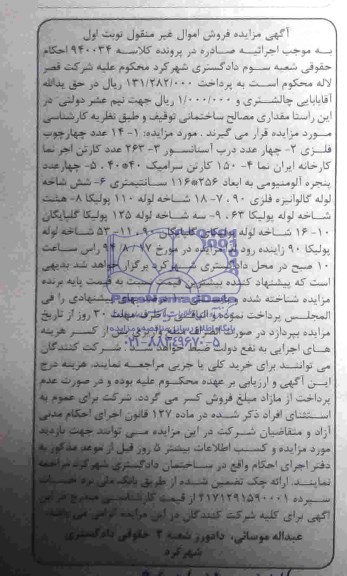 آگهی مزایده فروش اموال غیر منقول نوبت اول
به موجب اجرائیه صادره در پرونده کلاسه ۹۴۰۰۳۴ احکام
حقوقی شعبه سوم دادگستری شهرکرد محکوم علیه شرکت قصر
لاله محکوم است به پرداخت ۱۳۱/۲۸۲/۰۰۰ ریال در حق یدالله
آقابابایی چالشتری و ۱/۰۰۰/۰۰۰ ریال جهت نیم عشر دولتی در
این راستا مقداری مصالح ساختمانی توقیف و طبق نظریه کارشناسی
مورد مزایده قرار می گیرند . مورد مزایده: ۱- ۱۴ عدد چهارچوب
فلزی ۲- چهار عدد درب آسانسور ۳- ۲۶۳ عدد کارتن آجر نما
کارخانه ایران نما ۴- ۱۵۰ کارتن سرامیک ۴۰*۴۰ .۵- چهارعدد
پنجره آلومنیومی به ابعاد ۲۵۶*۱۱۶ سانتیمتری ۶- شش شاخه
لوله گالوانیزه فلزی ۹۰ .۷- ۱۸ شاخه لوله ۱۱۰ پولیکا ۸- هشت
شاخه لوله پولیکا ۶۳ .۹- سه شاخه لوله ۱۲۵ پولیکا گلپایگان
۱۰- ۱۶ شاخه لوله پولیکای گلپایگان ۹۰ .۱۱- ۵۳ شاخه لوله
پولیکا ۹۰ زاینده رود مزایده در مورخ ۹۴/۸/۷ راس ساعت
۱۰ صبح در محل دادگستری شهرکرد برگزار خواهد شد بدیهی
است که پیشنهاد کننده بیشترین قیمت نسبت به قیمت پایه برنده
مزایده شناخته شده و پیشنهادی را فی
المجلس پرداخت نموده و الباقی را ظرف مهلت ۳۰ روز از تاریخ
مزایده بپردازد در صورت پس از کسر هزینه
های اجرایی به نفع دولت ضبط خواهد شد. شرکت کنندگان
می توانند برای خرید کلی یا جزیی مراجعه نمایند. هزینه درج
این آگهی و ارزیابی بر عهده محکوم علیه بوده و در صورت عدم
پرداخت از مازاد مبلغ فروش کسر می گردد. شرکت برای عموم به
استثنای افراد ذکر شده در ماده ۱۲۷ قانون اجرای احکام مدنی
آزاد و متقاضیان شرکت در این مزایده می توانند جهت بازدید
مورد مزایده و کسب اطلاعات بیشتر ۵ روز قبل از موعد مذکور به
دفتر اجرای احکام واقع در ساختمان دادگستری شهرکرد مراجعه
نمایند. ارائه چک تضمین شده از طریق بانک ملی نزد حساب
سپرده ۲۱۷۱۲۹۱۵۹۰۰۰۱ از قیمت کارشناسی مندرج در این
آگهی برای کلیه شرکت کنندگان در این مزایده الزامی می باشد.
عبداله موسائی، دادورز شعبه ۳ حقوقی دادگستری
شهرکرد
۰۲۱-۸۸۳۴۹۶۷۰-۵